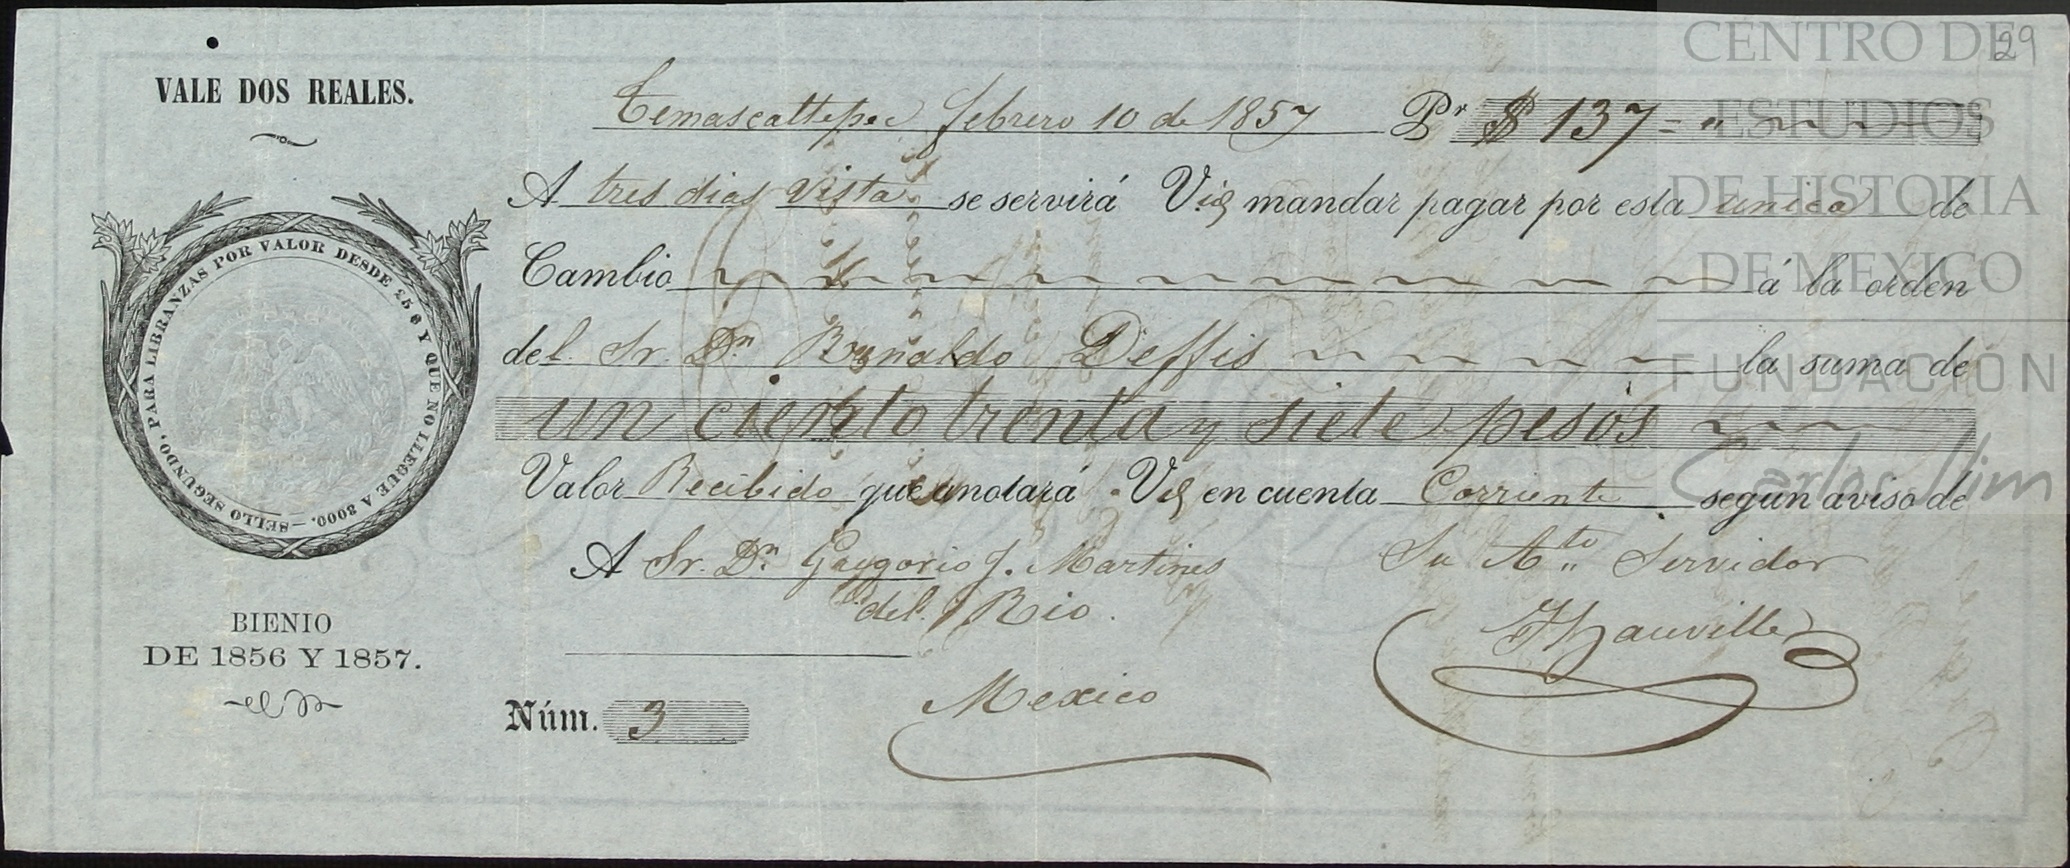 29
VALE DOS REALES.
SELLO SEGUNDO, PARA LIBRANZAS POR VALOR DESDE 256 Y QUE NO LLEGUE A 3000.—
BIENIO
DE 1856 Y 1857.
Temascaltepec febrero 10 de 1857 Pr $ 137="
A tres dias vista se servirá Vd mandar pagar por esta unica de
Cambio á la orden
del Sr. Dn. Reynaldo Deffis la suma de
un ciento trenta y siete pesos
Valor Recibido que anotará Vd en cuenta Corriente segun aviso de
A Sr. Dn. Gregorio J. Martines
del Rio.
Su Ato. Servidor
Mexico
Núm. 3
CENTRO DE
ESTUDIOS
DE HISTORIA
DE MEXICO
FUNDACIÓN
Carlos Slim